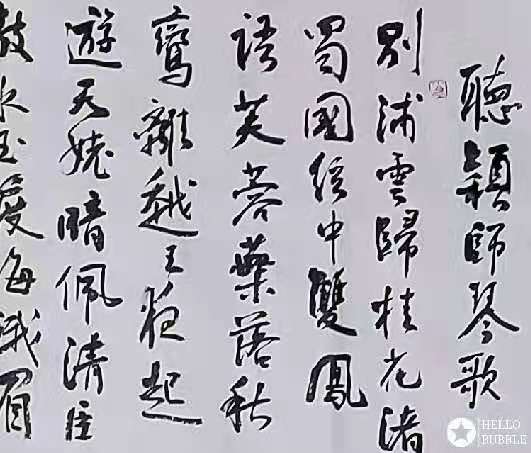 聽穎師琴歌
別浦雲歸桂花渚
蜀國絃中雙鳳
語芙蓉葉落秋
鸞離越王夜起
遊天姥暗佩清臣
敲水玉渡海蛾眉
HELLO
BUBBLE